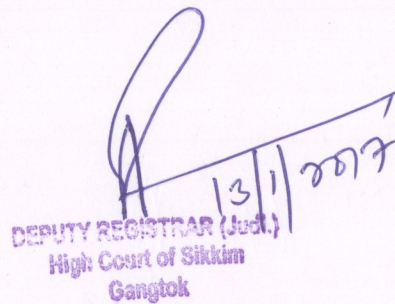 13/1/2017
DEPUTY REGISTRAR (Judl.)
High Court of Sikkim
Gangtok